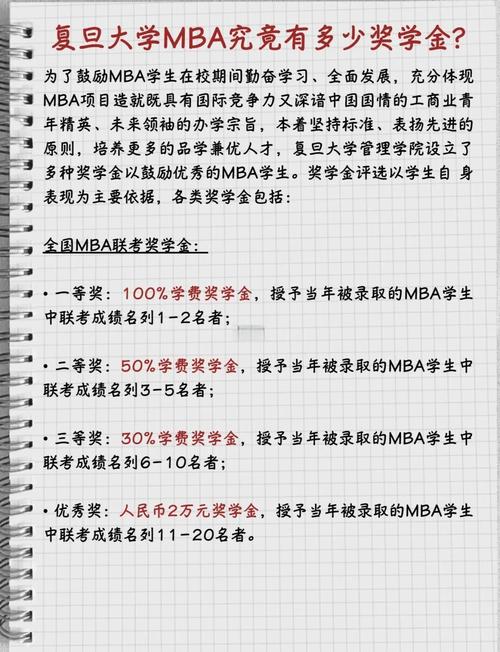 复旦大学MBA究竟有多少奖学金?
为了鼓励MBA学生在校期间勤奋学习、全面发展，充分体现
MBA项目造就既具有国际竞争力又深谙中国国情的工商业青
年精英、未来领袖的办学宗旨，本着坚持标准、表扬先进的
原则，培养更多的品学兼优人才，复旦大学管理学院设立了
多种奖学金以鼓励优秀的MBA学生。奖学金评选以学生自 身
表现为主要依据，各类奖学金包括：
全国MBA联考奖学金：
• 一等奖：100%学费奖学金，授予当年被录取的MBA学生
中联考成绩名列1-2名者；
• 二等奖：50%学费奖学金，授予当年被录取的MBA学生中
联考成绩名列3-5名者；
• 三等奖：30%学费奖学金，授予当年被录取的MBA学生中
联考成绩名列6-10名者；
• 优秀奖：人民币2万元奖学金，授予当年被录取的MBA学生
中联考成绩名列11-20名者。